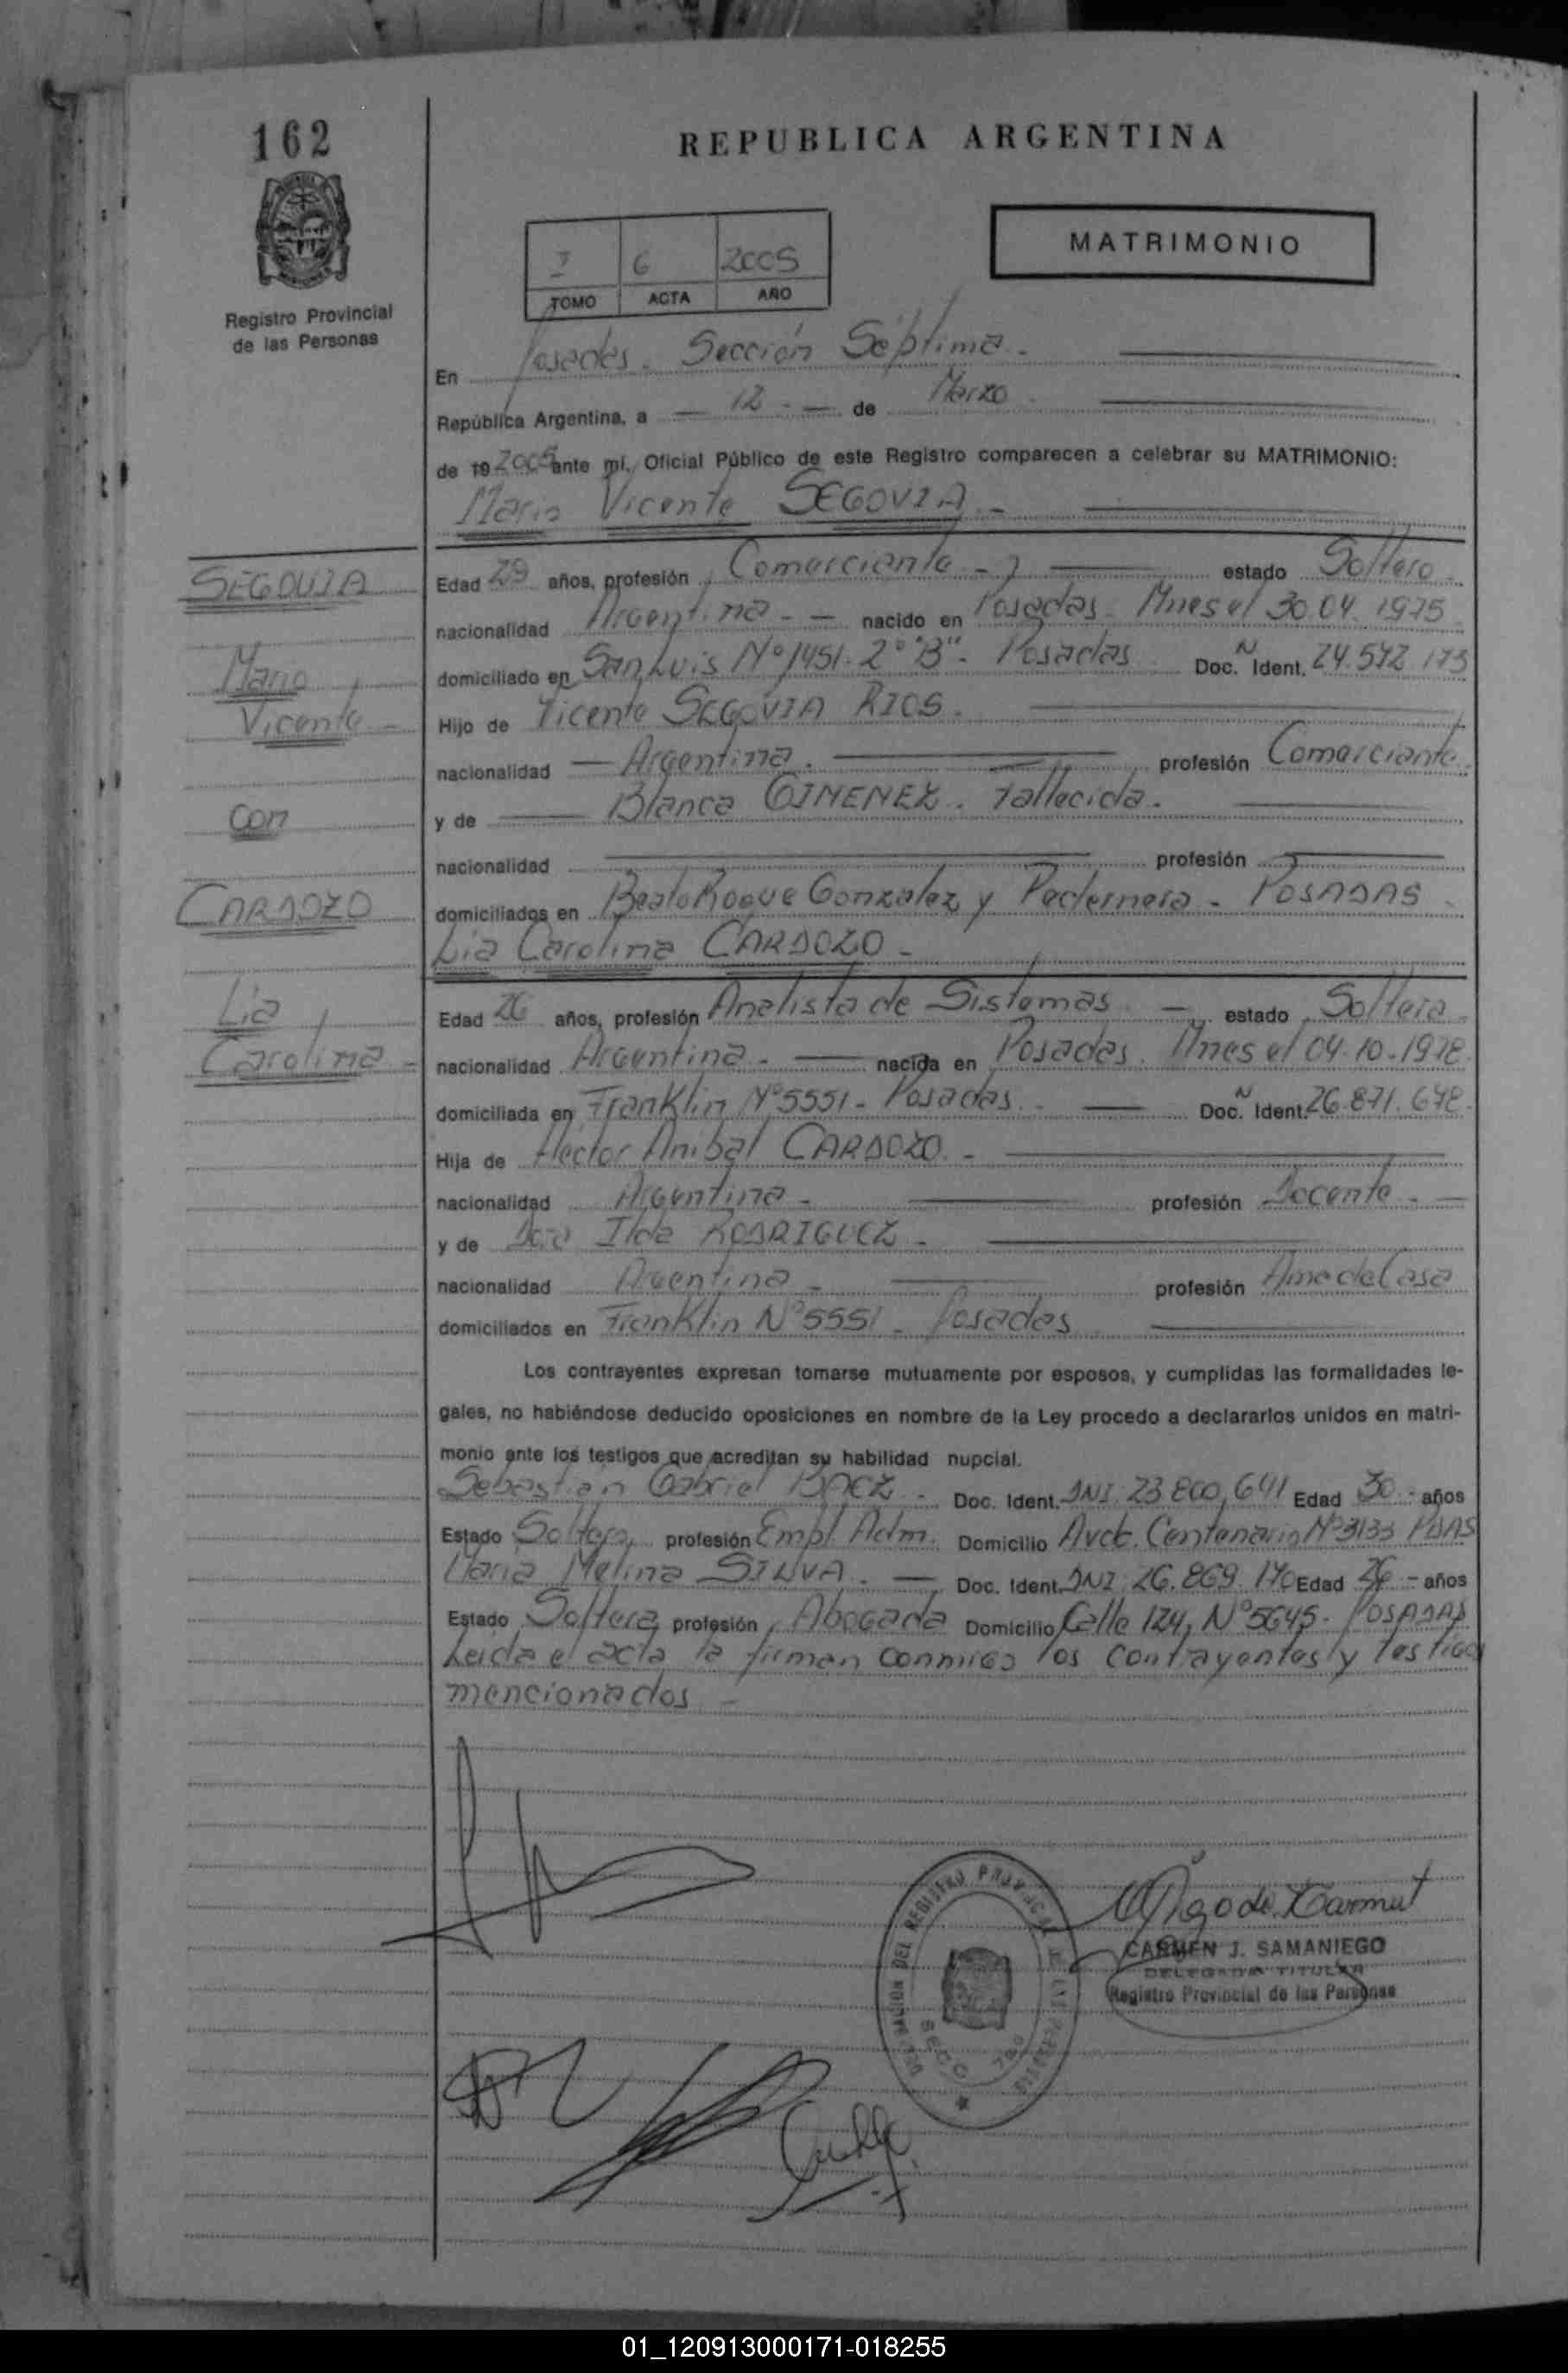 162
REPUBLICA ARGENTINA
MATRIMONIO
I 6 2005
TOMO ACTA AÑO
Registro Provincial
de las Personas
En Posadas. Sección Séptima.
República Argentina, a 12 de Marzo
de 19 2005 ante mí, Oficial Público de este Registro comparecen a celebrar su MATRIMONIO:
Mario Vicente SEGOVIA
SEGOVIA
Mario
Vicente
con
CARDOZO
Lia
Carolina
Edad 29 años, profesión Comerciante estado Soltero
nacionalidad Argentina nacido en Posadas. Mnes el 30.04.1975
domiciliado en San Luis Nº 1451. 2º "B". Posadas Doc. N Ident. 24.572.173
Hijo de Vicente SEGOVIA RIOS.
nacionalidad Argentina. profesión Comerciante.
y de Blanca GIMENEZ. Fallecida.
nacionalidad profesión
domiciliados en Beato Roque Gonzalez y Pedernera - POSADAS
Lia Carolina CARDOZO
Edad 26 años, profesión Analista de Sistemas estado Soltera
nacionalidad Argentina. nacida en Posadas. Mnes el 04.10.1978
domiciliada en Franklin Nº 5551 - Posadas. Doc. N Ident. 26.871.678
Hija de Hector Anibal CARDOZO.
nacionalidad Argentina profesión Docente.
y de Ilda RODRIGUEZ.
nacionalidad Argentina profesión Ama de Casa
domiciliados en Franklin Nº 5551. Posadas
Los contrayentes expresan tomarse mutuamente por esposos, y cumplidas las formalidades le-
gales, no habiéndose deducido oposiciones en nombre de la Ley procedo a declararlos unidos en matri-
monio ante los testigos que acreditan su habilidad nupcial.
Sebastián Gabriel BAEZ. Doc. Ident. DNI. 23.800.641 Edad 30 años
Estado Soltero profesión Empl. Adm. Domicilio Avda. Centenario Nº 3133 PDAS
Maria Melina SILVA. Doc. Ident. DNI. 26.869.170 Edad 26 años
Estado Soltera profesión Abogada Domicilio Calle 124, Nº 5645. POSADAS
Leida el acta la firman conmigo los contrayentes y testigos
mencionados
CARMEN J. SAMANIEGO
DELEGADA TITULAR
Registro Provincial de las Personas
01_120913000171-018255